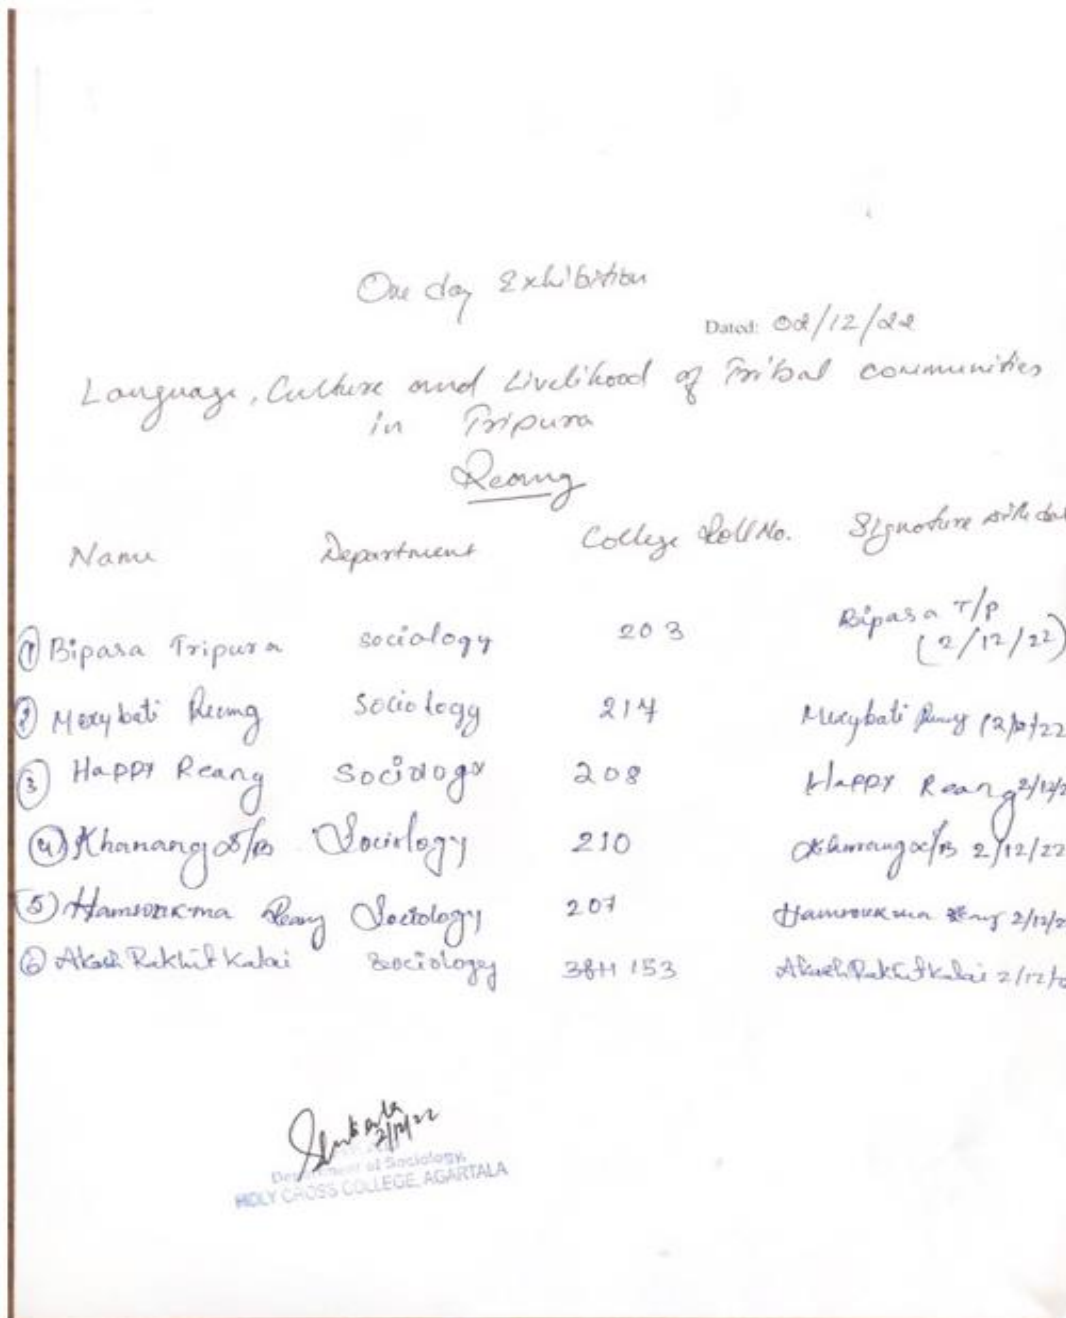 One day Exhibition
Dated: 02/12/22
Language, Culture and Livelihood of Tribal communities
in Tripura
Reang
Name Department College Roll No. Signature with dat
① Bipasa Tripura sociology 203 Bipasa T/P (2/12/22)
② Merybati Reang Sociology 214 Merybati Reang (2/12/22
③ Happy Reang Sociology 208 Happy Reang 2/12/2
④ Khanang Sociology 210 2/12/22
⑤ Reang Sociology 207 Reang 2/12/2
⑥ Akash Rakhit Kalai sociology 38H 153 Akash Rakhit Kalai 2/12/
2/12/22
Department of Sociology,
HOLY CROSS COLLEGE, AGARTALA